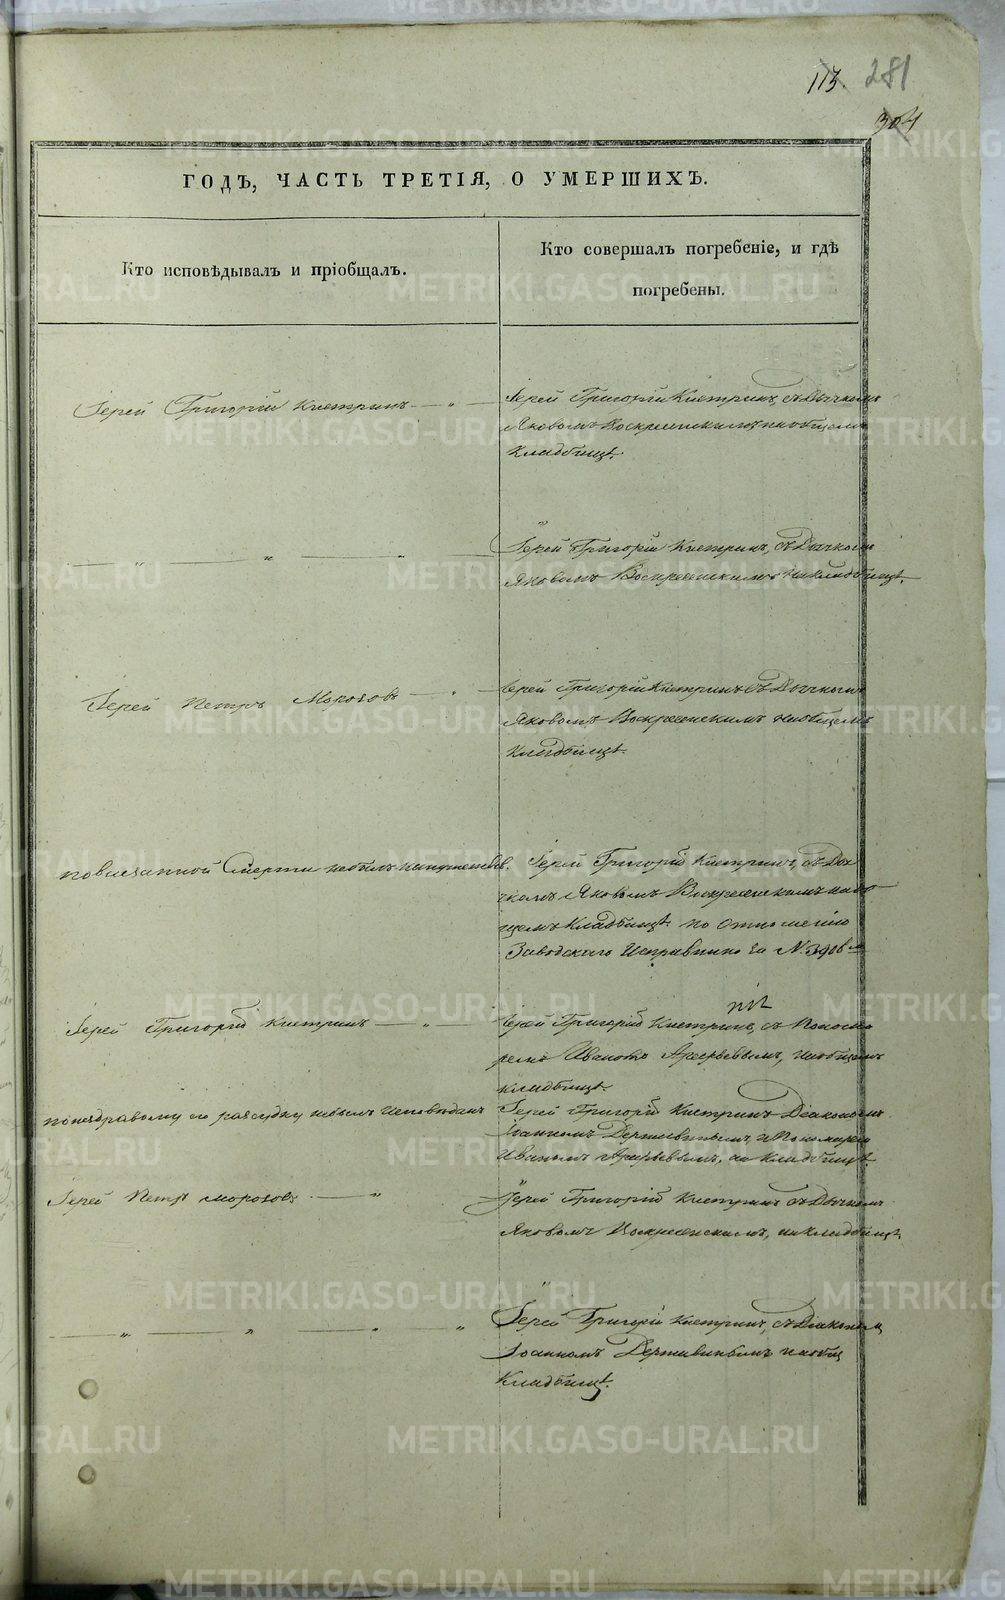 113. 281
304
ГОДЪ, ЧАСТЬ ТРЕТІЯ, О УМЕРШИХЪ.
Кто исповѣдывалъ и пріобщалъ.
Кто совершалъ погребеніе, и гдѣ
погребены.
Іерей Григорій Кистринъ — „ —
Іерей Григорій Кистринъ, съ Дьячкомъ
Яковомъ Воскресенскимъ на общемъ
кладбищѣ.
— „ — „ — „ —
Іерей Григорій Кистринъ, съ Дьячкомъ
Яковомъ Воскресенскимъ на кладбищѣ.
Іерей Петръ Морозовъ — „ —
Іерей Григорій Кистринъ съ Дьячкомъ
Яковомъ Воскресенскимъ на общемъ
кладбищѣ.
по внезапной Смерти небылъ
Іерей Григорій Кистринъ, съ Дья
чкомъ Яковомъ Воскресенскимъ на об
щемъ кладбищѣ по отношенію
Заводскаго Исправника за №
Іерей Григорій Кистринъ — „ —
Іерей Григорій Кистринъ, съ Поно
ремъ Иваномъ Арефьевымъ, на общемъ
кладбищѣ.
по нездравому его разсудку небылъ исповѣданъ
Іерей Григорій Кистринъ Діакономъ
Іоанномъ Державинымъ, и Пономаремъ
Иваномъ Арефьевымъ, на кладбищѣ.
Іерей Петръ Морозовъ — „
Іерей Григорій Кистринъ съ Дьячкомъ
Яковомъ Воскресенскимъ, на кладбищѣ.
— „ — „ — „ — „
Іерей Григорій Кистринъ, съ Діакономъ
Іоанномъ Державинымъ на общ
кладбищѣ.
METRIKI.GASO-URAL.RU